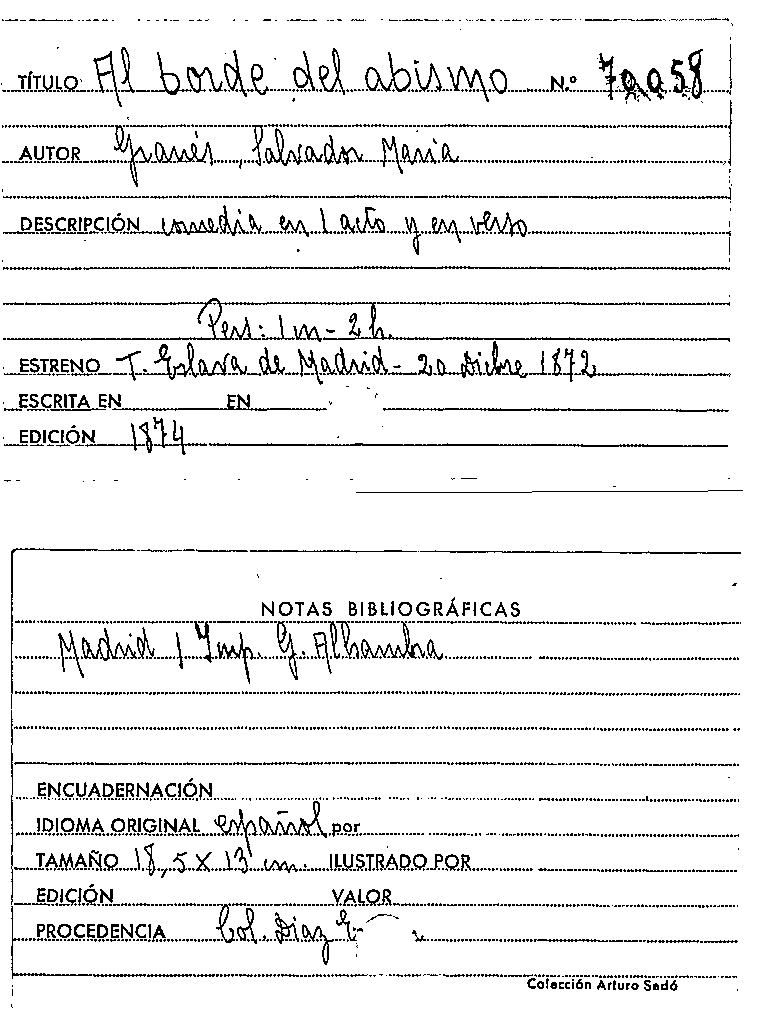 TÍTULO Al borde del abismo N.º 70058
AUTOR Granés, Salvador Maria
DESCRIPCIÓN comedia en 1 acto y en verso
Pers: 1m - 2h.
ESTRENO T. Eslava de Madrid - 20 Dicbre 1872
ESCRITA EN EN
EDICIÓN 1874
NOTAS BIBLIOGRÁFICAS
Madrid / Imp. G. Alhambra
ENCUADERNACIÓN
IDIOMA ORIGINAL español por
TAMAÑO 18,5 X 13 cm. ILUSTRADO POR
EDICIÓN VALOR
PROCEDENCIA Col. Diaz
Colección Arturo Sedó